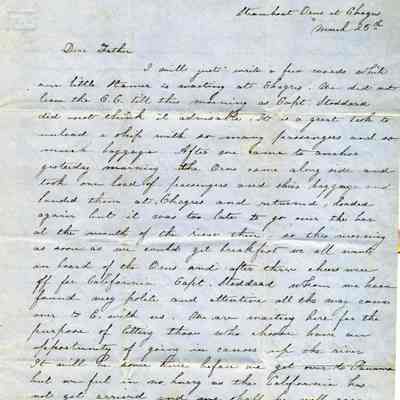 Steamboat Orus at Chagres
March 25th
Dear Father
I will just write a few words while
our little Steamer is waiting at Chagres. We did not
leave the C.C. till this morning as Capt. Stoddard
did not think it advisable. It is a great task to
unload a ship with so many passengers and so
much baggage. After we came to anchor
yesterday morning the Orus came along side and
took one load of passengers and their baggage and
landed them at Chagres and returned, loaded
again but it was too late to go over the bar
at the mouth of the river then, so this morning
as soon as we could get breakfast we all went
on board of the Orus and after three cheers were
off for California. Capt. Stoddard whom we have
found very polite and attentive all the way came
over to C. with us. We are waiting here for the
purpose of letting those who choose have an
opportunity of going in canoes up the river
It will be some time before we get over to Panama
but we feel in no hurry as the California has
not yet arrived and we shall